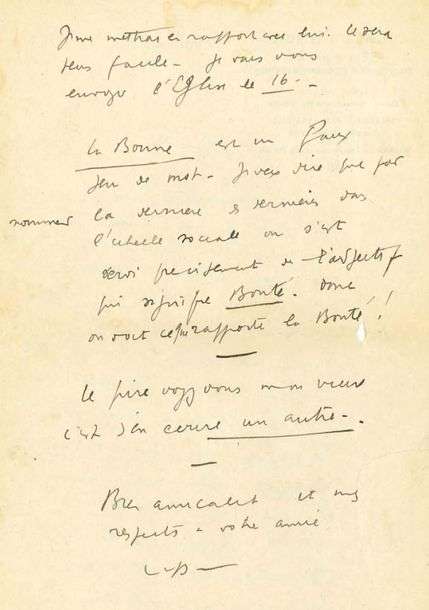 Je me mettrai en rapport avec lui. Ce sera
très facile - je vais vous
envoyer l'Eglise de 16 -
La Bonne est un faux
jeu de mot - Je veux dire que par
nommer la dernière des dernières dans
l'échelle sociale on s'est
servi précisément de l'adjectif
qui signifie Bonté. Donc
on voit ce que rapporte la Bonté !
Le pire voyez vous mon vieux
c'est d'en écrire un autre -.
Bien amicalement et mes
respects à votre amie